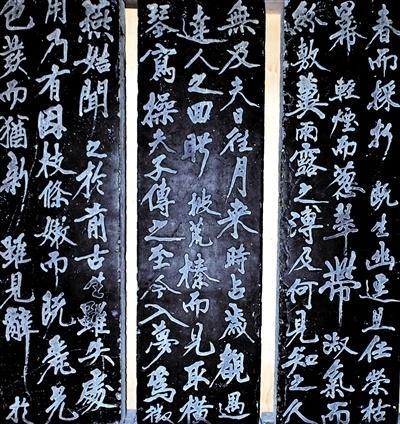 春而採折既生幽逕且任榮枯
冪輕煙而葱翠帶淑氣而
紛敷冀雨露之溥及何見知之久
無及夫日往月来時占歲觀遇
達人之回盼披荒榛而見取橫
琴寫操夫子傳之至今入夢爲徵
燕姞聞之於前古生雖失處
用乃有因枝條嫩而既麗光
色發而猶新雖見辭於